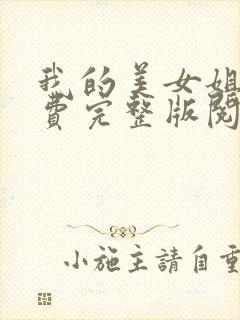 我的美女姐
費完整版閱
小施主請自重